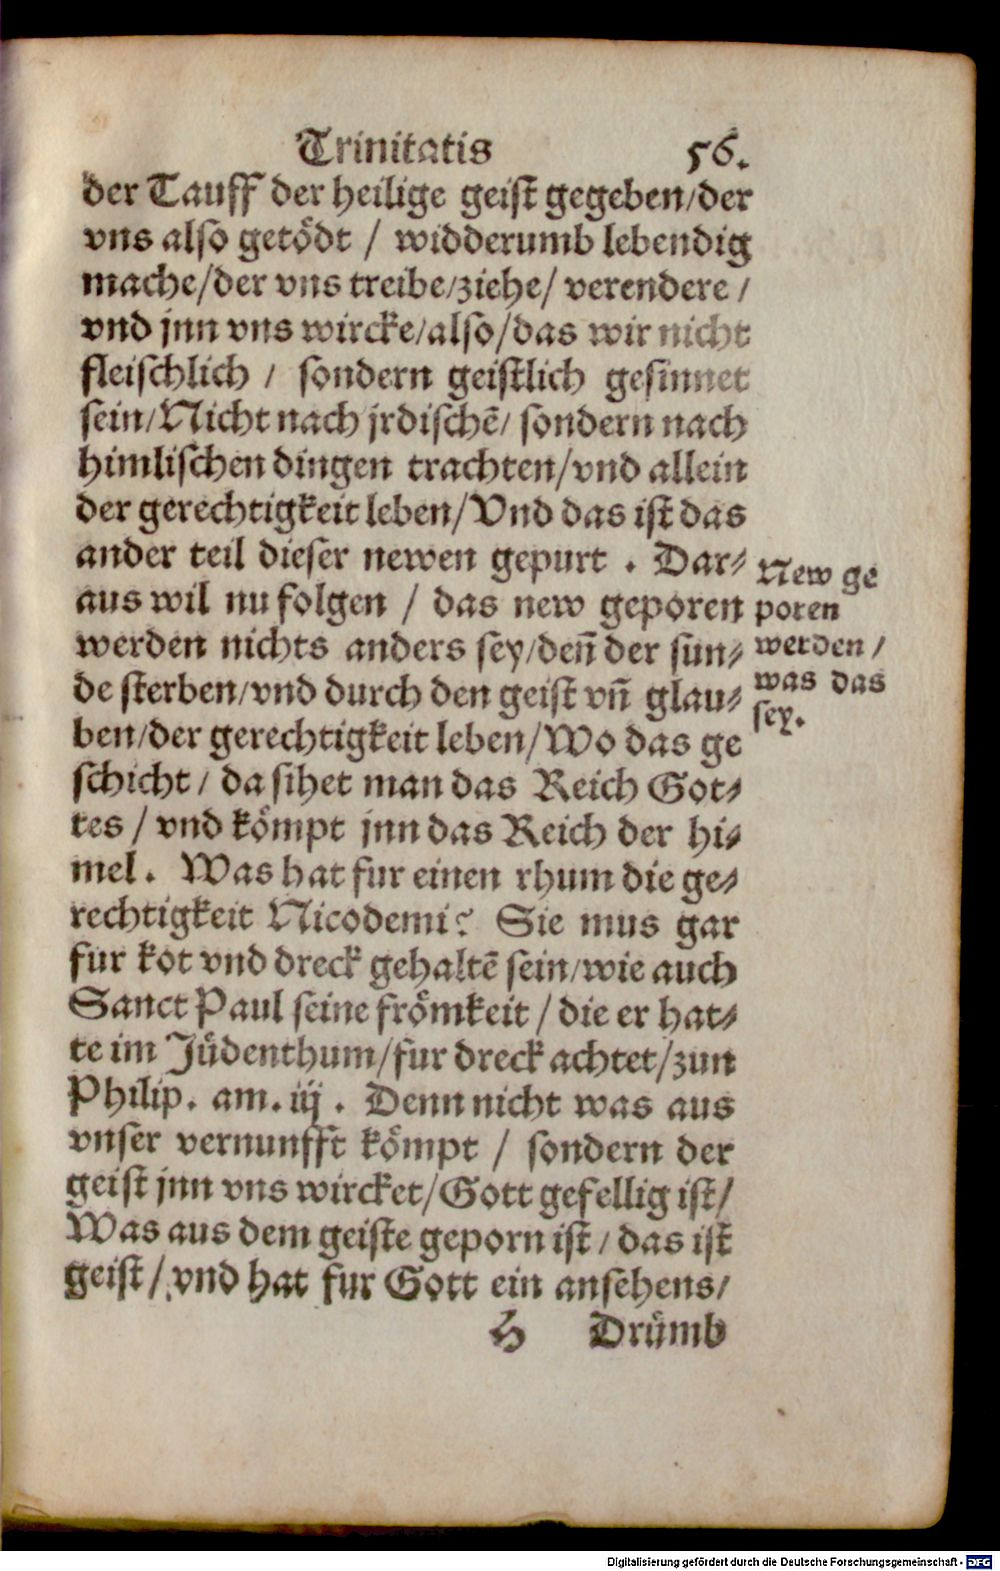 Trinitatis 56.
der Tauff der heilige geist gegeben/der
vns also getödt / widderumb lebendig
mache/der vns treibe/ziehe/ verendere /
vnd jnn vns wircke/also/das wir nicht
fleischlich / sondern geistlich gesinnet
sein/Nicht nach jrdischē/ sondern nach
himlischen dingen trachten/vnd allein
der gerechtigkeit leben/Vnd das ist das
ander teil dieser newen gepurt . Dar-
aus wil nu folgen / das new geporen
werden nichts anders sey/deñ der sun-
de sterben/vnd durch den geist vñ glau-
ben/der gerechtigkeit leben/Wo das ge
schicht / da sihet man das Reich Got-
tes / vnd kömpt jnn das Reich der hi-
mel . Was hat fur einen rhum die ge-
rechtigkeit Nicodemi? Sie mus gar
fur kot vnd dreck gehaltē sein/wie auch
Sanct Paul seine frömkeit / die er hat-
te im Jüdenthum/fur dreck achtet/zun
Philip. am. iij . Denn nicht was aus
vnser vernunfft kömpt / sondern der
geist jnn vns wircket/Gott gefellig ist/
Was aus dem geiste geporn ist / das ist
geist / vnd hat fur Gott ein ansehens/
H Drümb
New ge
poren
werden /
was das
sey.
Digitalisierung gefördert durch die Deutsche Forschungsgemeinschaft - DFG